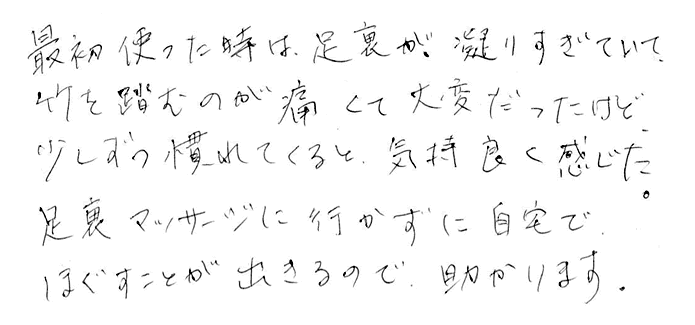 最初使った時は、足裏が凝りすぎていて、
竹を踏むのが痛くて大変だったけど、
少しずつ慣れてくると、気持良く感じた。
足裏マッサージに行かずに自宅で、
ほぐすことが出きるので、助かります。